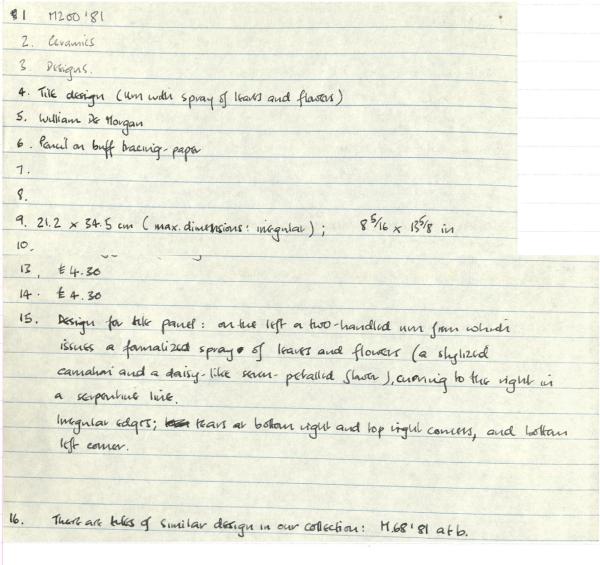 1 M200 '81
2. Ceramics
3 Designs.
4. Tile design (urn with spray of leaves and flowers)
5. William De Morgan
6. Pencil on buff tracing-paper
7.
8.
9. 21.2 x 34.5 cm (max. dimensions: irregular); 8 5/16 x 13 5/8 in
10.
13. £4.30
14. £4.30
15. Design for tile panel: on the left a two-handled urn from which
issues a formalized spray of leaves and flowers (a stylized
carnation and a daisy-like seven-petalled flower), curving to the right in
a serpentine line.
Irregular edges; tears at bottom right and top right corners, and bottom
left corner.
16. There are tiles of similar design in our collection: M.68 '81 a+b.